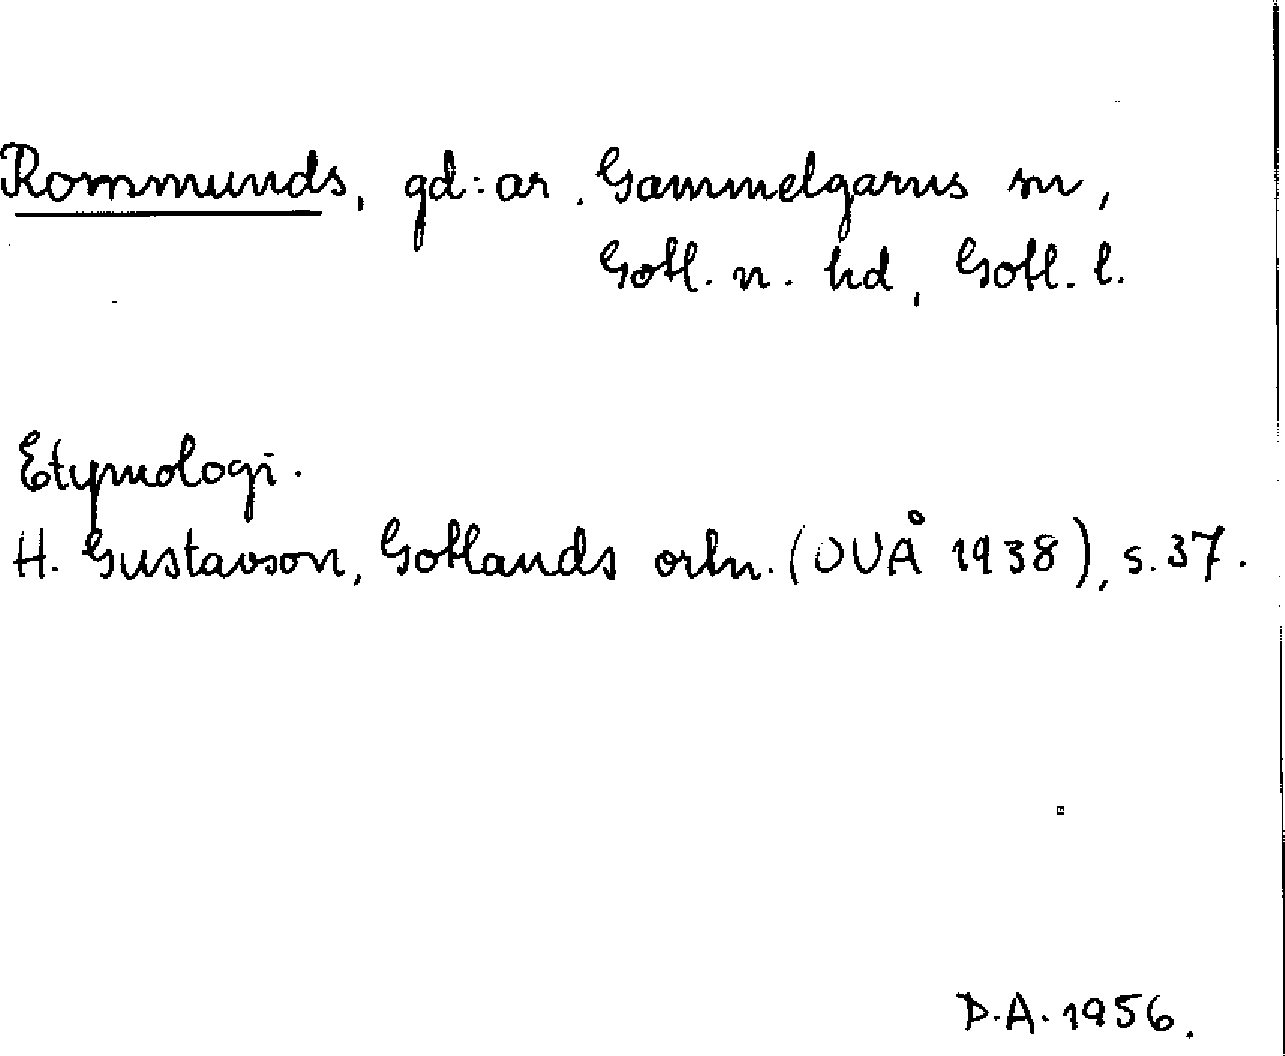 Rommunds, gd:ar. Gammelgarns sn,
Gotl. n. hd, Gotl. l.
Etymologi.
H. Gustavson, Gotlands ortn. (OUÅ 1938), s. 37.
D.A. 1956.